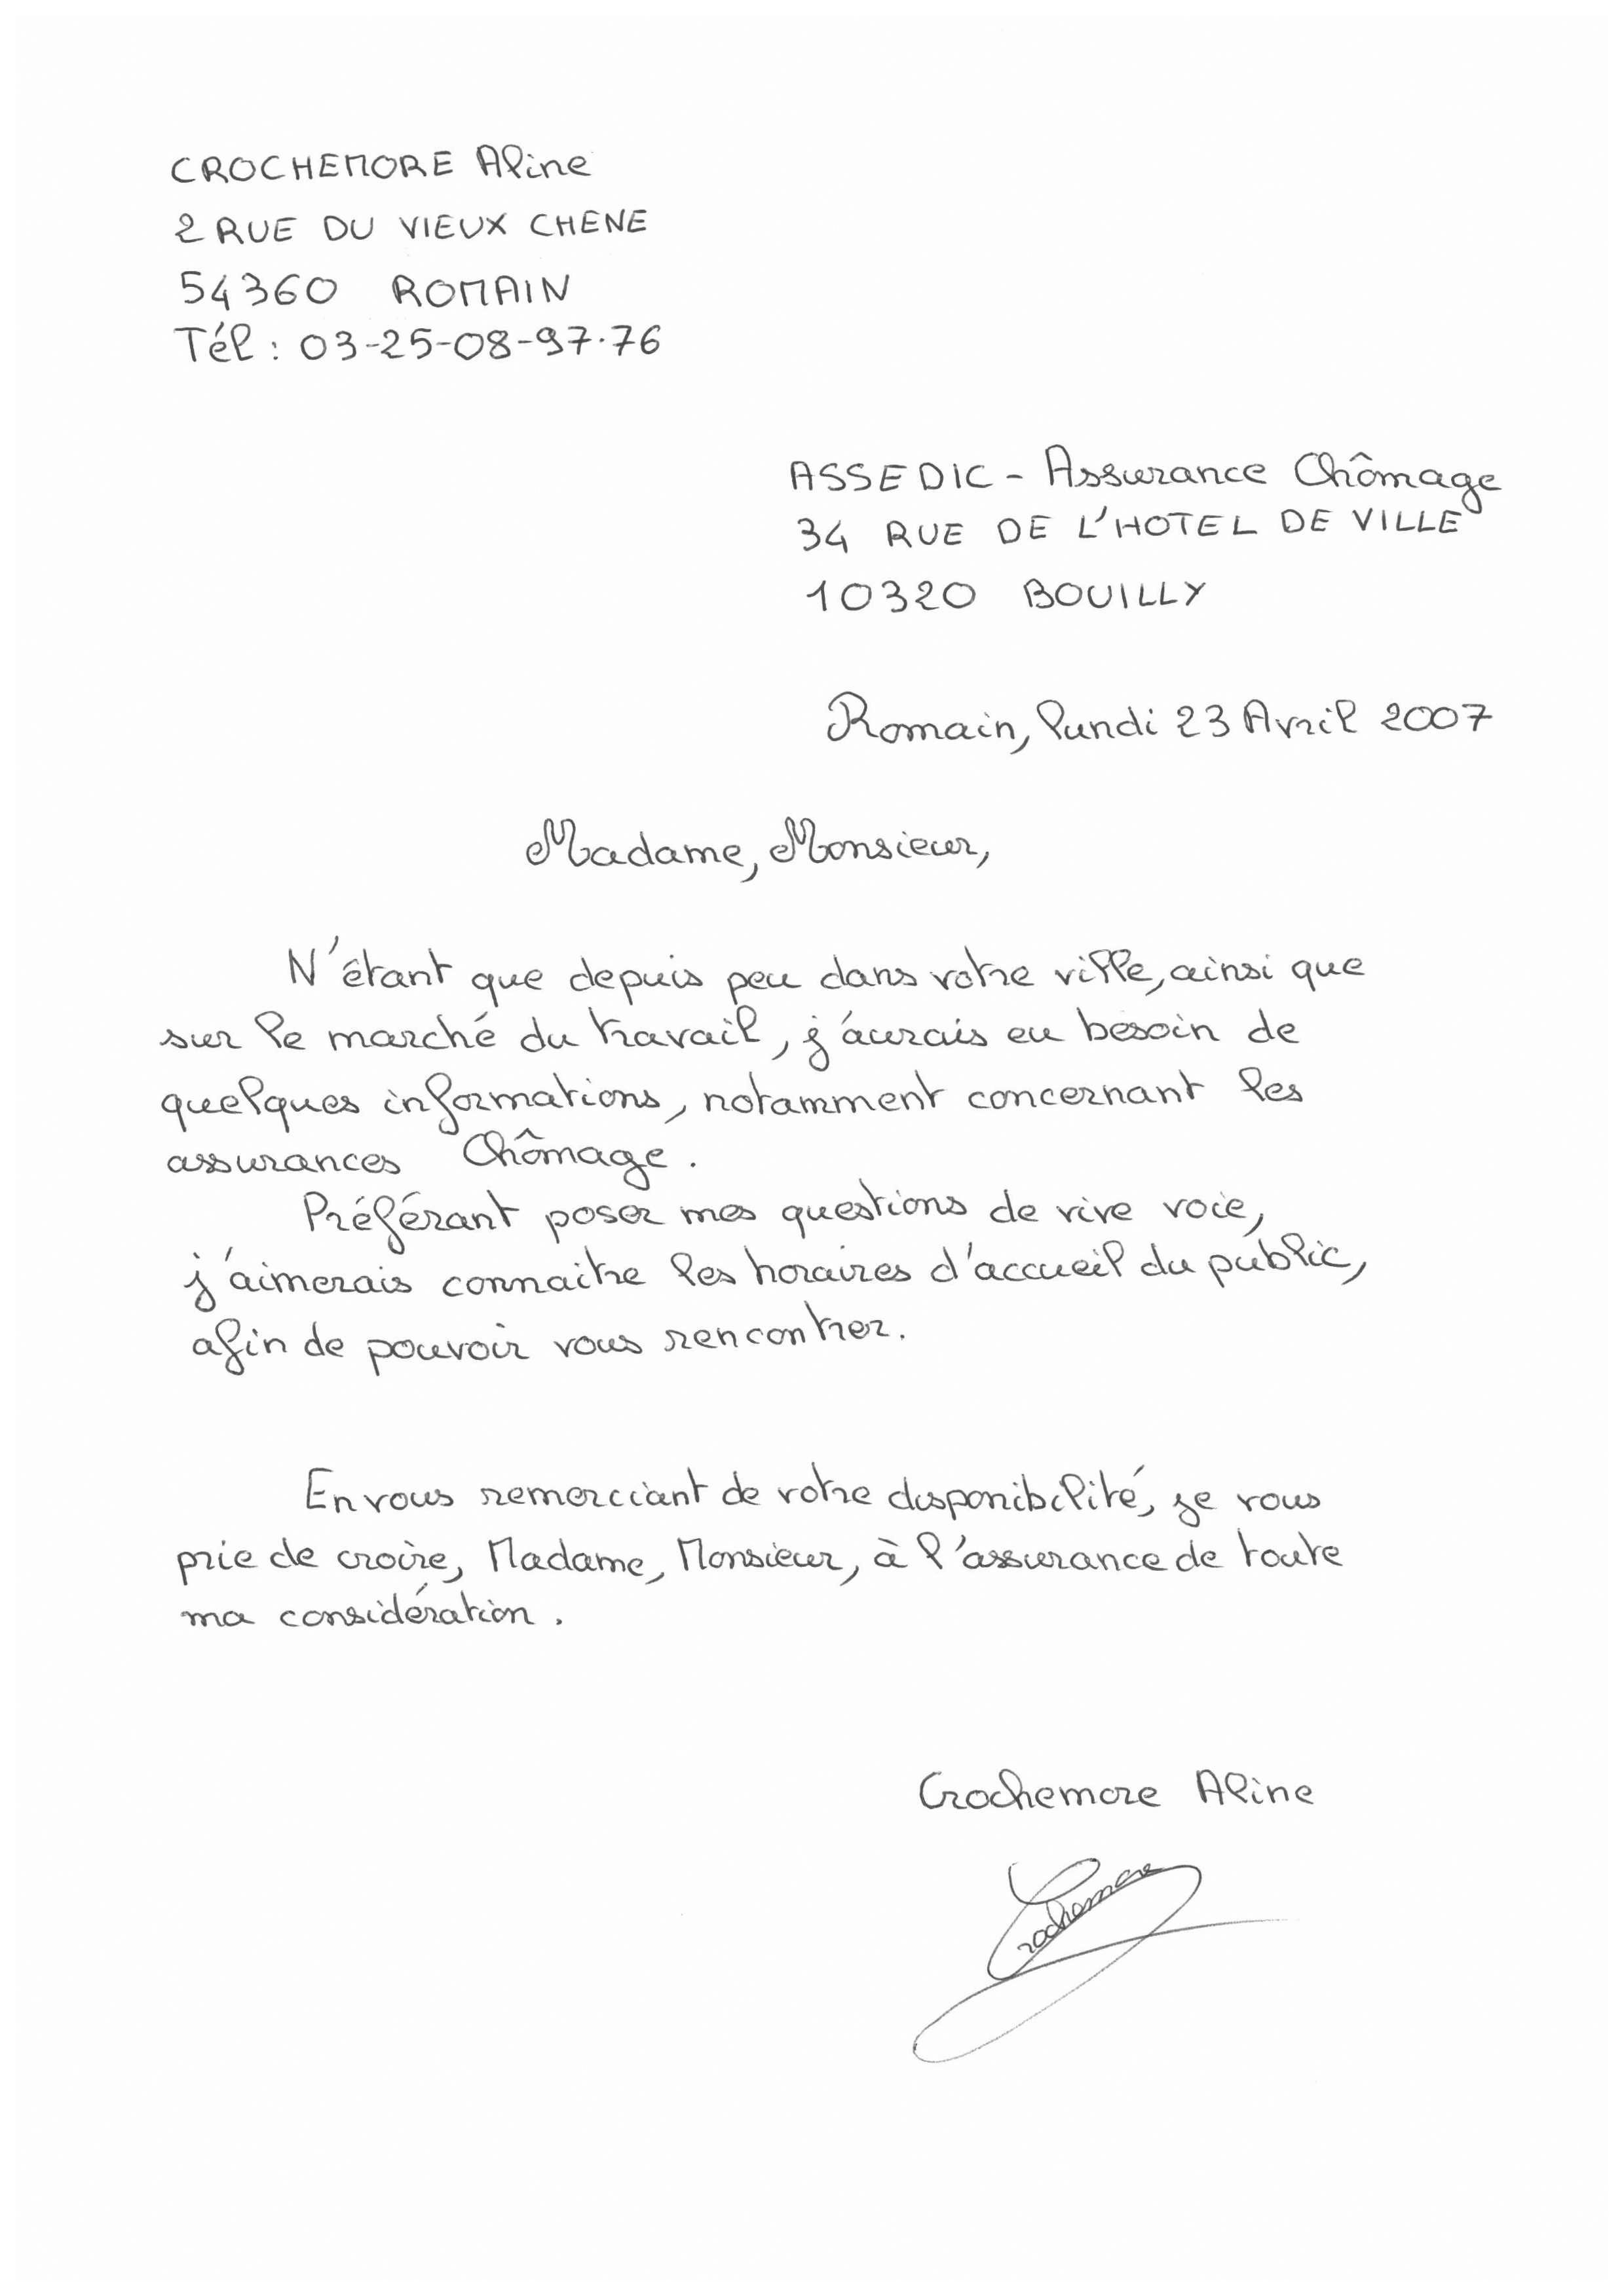 CROCHEMORE Aline
2 RUE DU VIEUX CHENE
54360 ROMAIN
Tél : 03-25-08-97.76
ASSEDIC - Assurance Chômage
34 RUE DE L'HOTEL DE VILLE
10320 BOUILLY
Romain, lundi 23 Avril 2007
Madame, Monsieur,
N'étant que depuis peu dans votre ville, ainsi que
sur le marché du travail, j'aurais eu besoin de
quelques informations, notamment concernant les
assurances Chômage.
Préférant poser mes questions de vive voie,
j'aimerais connaitre les horaires d'accueil du public,
afin de pouvoir vous rencontrer.
En vous remerciant de votre disponibilité, je vous
prie de croire, Madame, Monsieur, à l'assurance de toute
ma considération.
Crochemore Aline
Crochemore